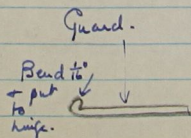 Guard.
Bend 1/16"
+ put
to
hinge.